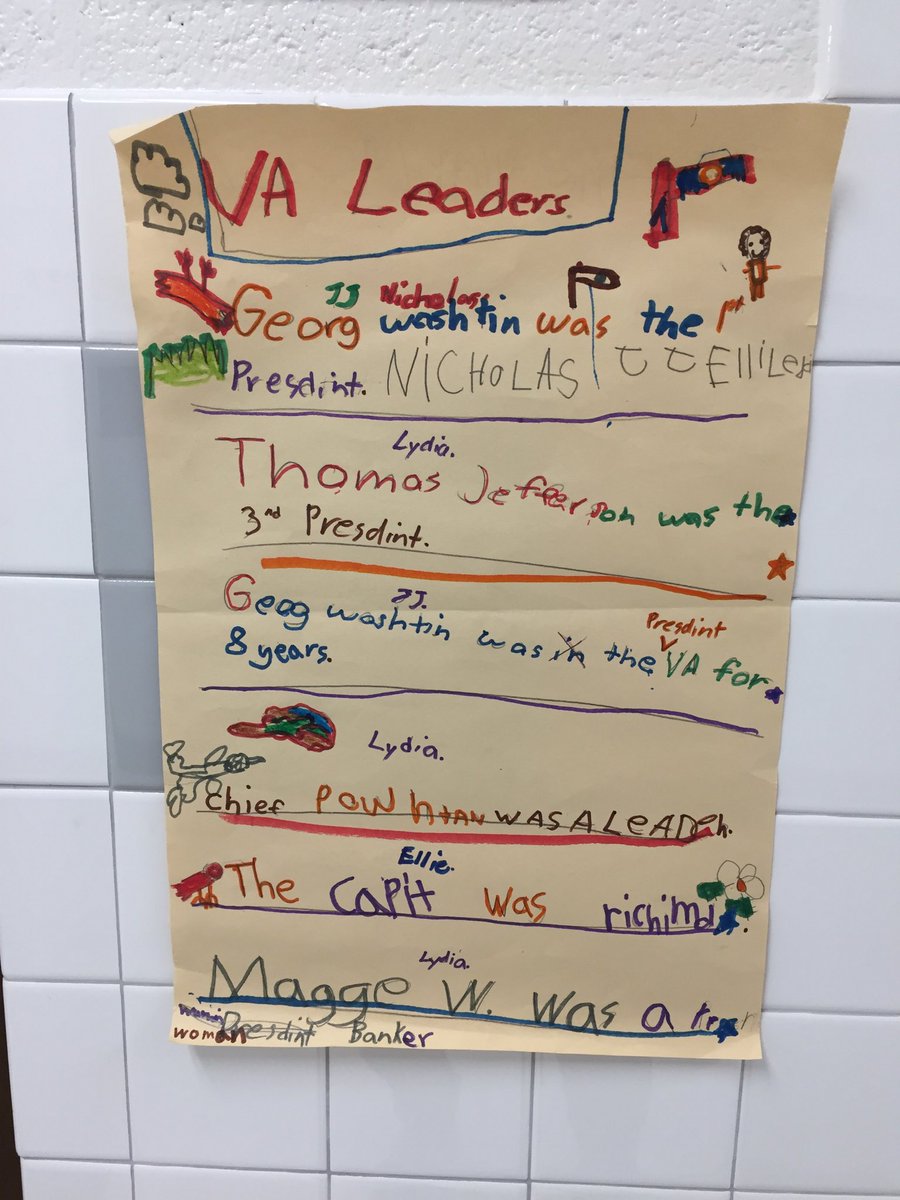 VA Leaders
JJ Nicholas
Georg washtin was the
Presdint. NICHOLAS
Lydia.
Thomas Jefferson was the
3rd Presdint.
JJ.
Presdint
Geog washtin was in the VA for
8 years.
Lydia.
Chief POWhtAN WAS A LEADeh.
Ellie.
The CaPit was richimd.
Lydia.
Magge W. was a
woman Presdint Banker